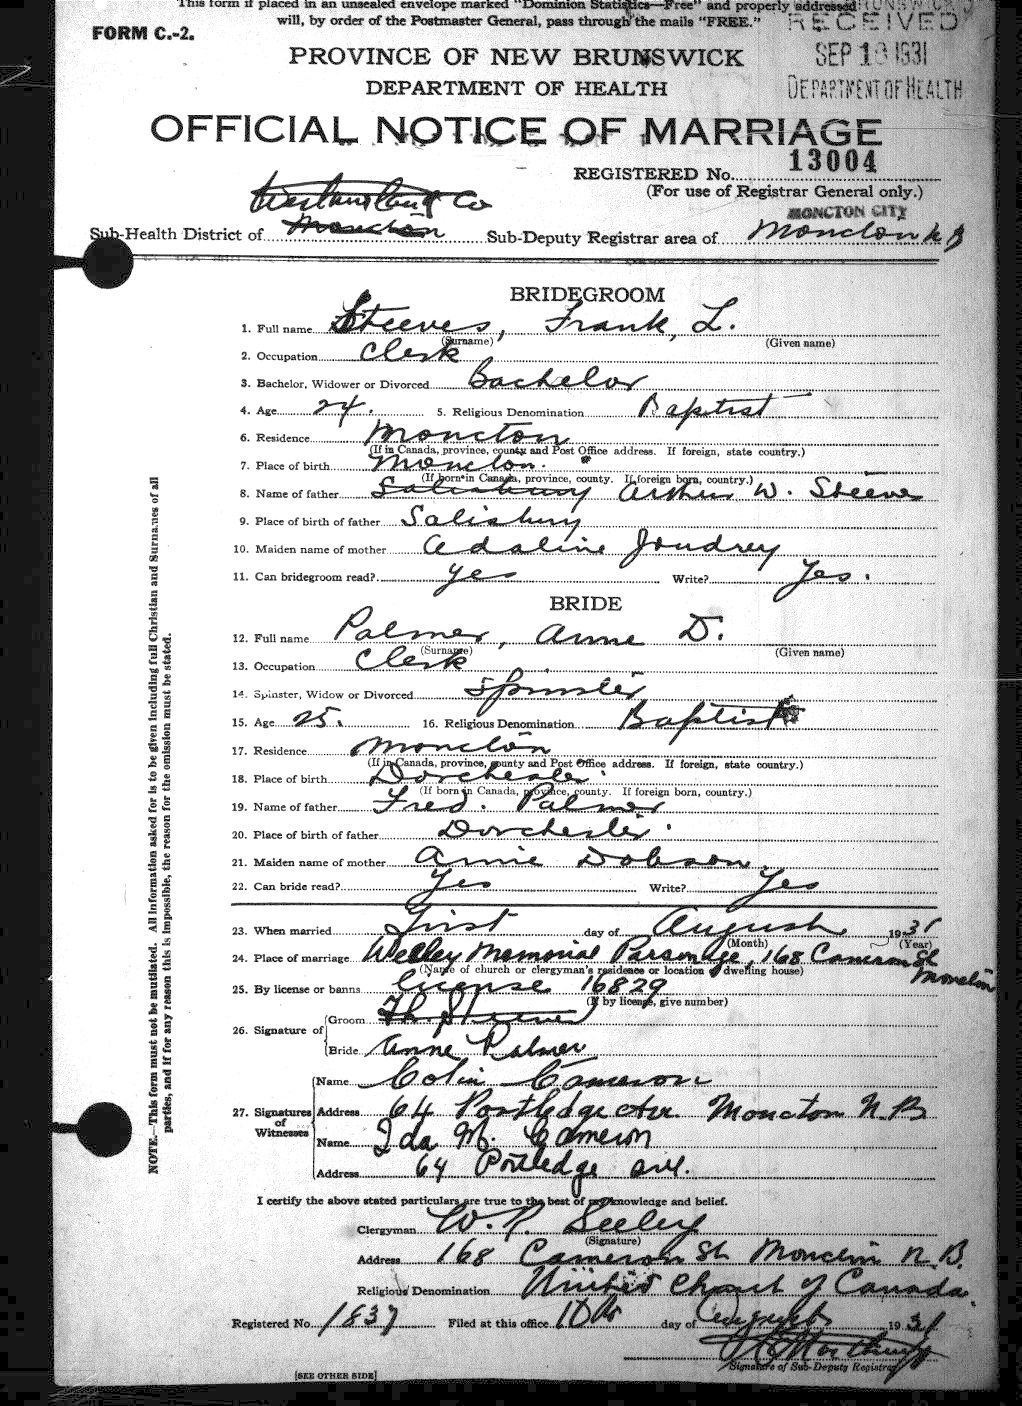 This form if placed in an unsealed envelope marked "Dominion Statistics—Free" and properly addressed
will, by order of the Postmaster General, pass through the mails "FREE."
FORM C.-2.
RECEIVED
SEP 1 1931
DEPARTMENT OF HEALTH
PROVINCE OF NEW BRUNSWICK
DEPARTMENT OF HEALTH
OFFICIAL NOTICE OF MARRIAGE
REGISTERED No. 13004
(For use of Registrar General only.)
Westmorland Co
MONCTON CITY
Sub-Health District of Moncton Sub-Deputy Registrar area of Moncton N B
BRIDEGROOM
1. Full name Steeves, Frank L.
(Surname) (Given name)
2. Occupation Clerk
3. Bachelor, Widower or Divorced Bachelor
4. Age 24. 5. Religious Denomination Baptist
6. Residence Moncton
(If in Canada, province, county and Post Office address. If foreign, state country.)
7. Place of birth Moncton.
(If born in Canada, province, county. If foreign born, country.)
8. Name of father Salisbury Arthur W. Steeves
9. Place of birth of father Salisbury
10. Maiden name of mother Adaline Joudrey
11. Can bridegroom read? Yes Write? Yes.
BRIDE
12. Full name Palmer, Anne D.
(Surname) (Given name)
13. Occupation Clerk
14. Spinster, Widow or Divorced Spinster
15. Age 25. 16. Religious Denomination Baptist
17. Residence Moncton
(If in Canada, province, county and Post Office address. If foreign, state country.)
18. Place of birth Dorchester.
(If born in Canada, province, county. If foreign born, country.)
19. Name of father Fred. Palmer
20. Place of birth of father Dorchester.
21. Maiden name of mother Annie Dobson
22. Can bride read? Yes Write? Yes
23. When married First day of August 1931
(Month) (Year)
24. Place of marriage Wesley Memorial Parsonage, 168 Cameron St
Moncton
(Name of church or clergyman's residence or location of dwelling house)
25. By license or banns License 16829
(If by license, give number)
26. Signature of
Groom Steeves
Bride Anne Palmer
27. Signatures of Witnesses
Name Colin Cameron
Address 64 Portledge Ave. Moncton N.B
Name Ida M. Cameron
Address 64 Portledge ave.
I certify the above stated particulars are true to the best of my knowledge and belief.
Clergyman W. P. Seeley
(Signature)
Address 168 Cameron St Moncton N.B.
Religious Denomination United Church of Canada.
Registered No. 1837 Filed at this office 10th day of August 1931
Signature of Sub-Deputy Registrar
[SEE OTHER SIDE]
NOTE.—This form must not be mutilated. All information asked for is to be given including full Christian and Surnames of all
parties, and if for any reason this is impossible, the reason for the omission must be stated.